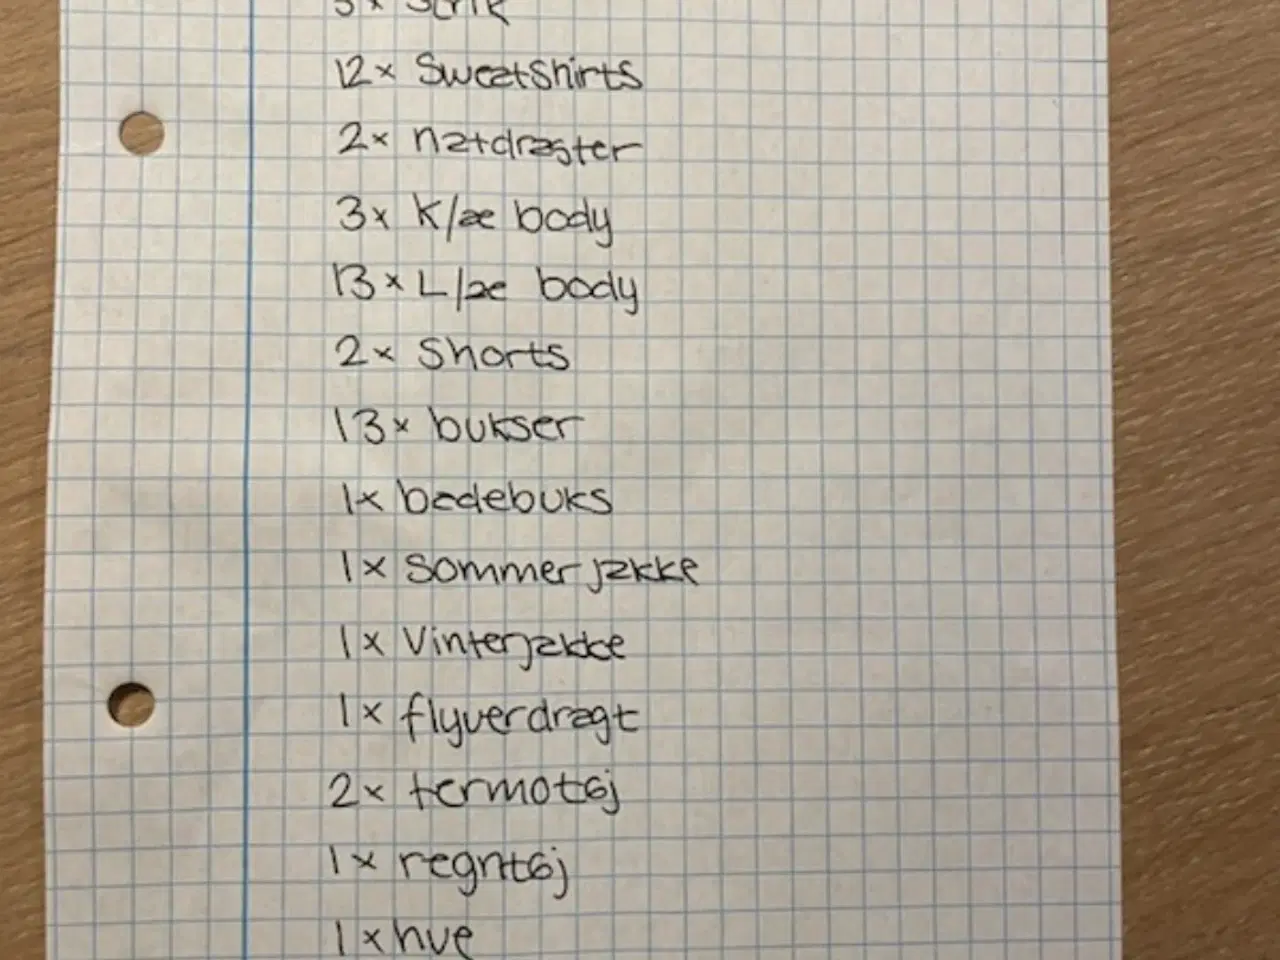 5x Strik
12x Sweatshirts
2x natdragter
3x K/æ body
13x L/æ body
2x Shorts
13x bukser
1x badebuks
1x Sommerjakke
1x Vinterjakke
1x flyverdragt
2x termotøj
1x regntøj
1x hue